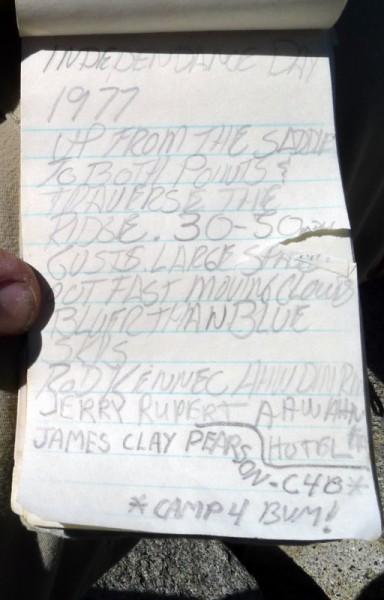 INDEPENDANCE DAY
1977
UP FROM THE SADDLE
TO BOTH POINTS &
TRAVERSE THE
RIDGE. 30-50
GUSTS. LARGE
BUT FAST MOVING CLOUDS
BLUER THAN BLUE
SKYS
ROD KENNEC
JERRY RUPERT AHWAHN
JAMES CLAY PEARSON-C4B*
HOTEL
*CAMP 4 BUM!